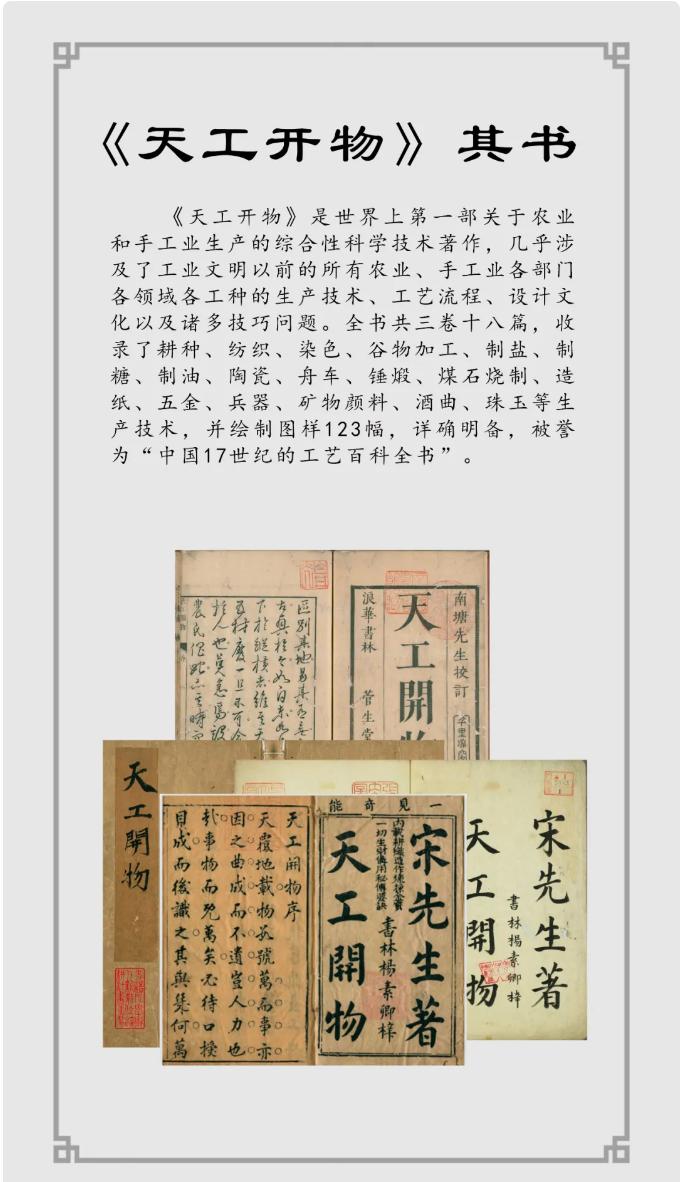 《天工开物》其书
《天工开物》是世界上第一部关于农业
和手工业生产的综合性科学技术著作，几乎涉
及了工业文明以前的所有农业、手工业各部门
各领域各工种的生产技术、工艺流程、设计文
化以及诸多技巧问题。全书共三卷十八篇，收
录了耕种、纺织、染色、谷物加工、制盐、制
糖、制油、陶瓷、舟车、锤煅、煤石烧制、造
纸、五金、兵器、矿物颜料、酒曲、珠玉等生
产技术，并绘制图样123幅，详确明备，被誉
为“中国17世纪的工艺百科全书”。
南塘先生校訂
天工開
浪華書林
菅生堂
天工開物
一見奇能
宋先生著
內載耕織造作煉採金寶
一切生財備用秘傳要訣
書林楊素卿梓
天工開物
天工開物序
天覆地載物數號萬而事亦
因之曲成而不遺豈人力也
哉事物而既萬矣必待口授
目成而後識之其與幾何萬
宋先生著
書林楊素卿梓
天工開物